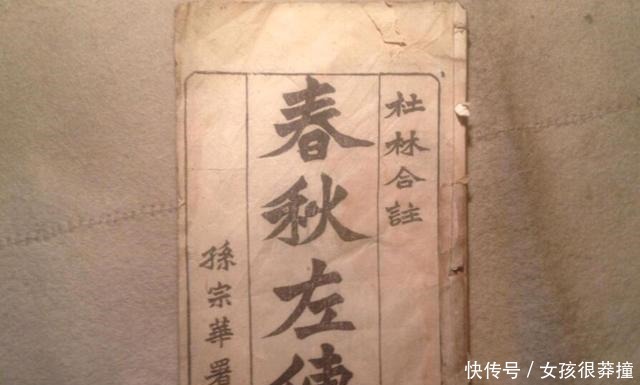 杜林合註
春秋左傳
孫宗華署
快传号 / 女孩很莽撞